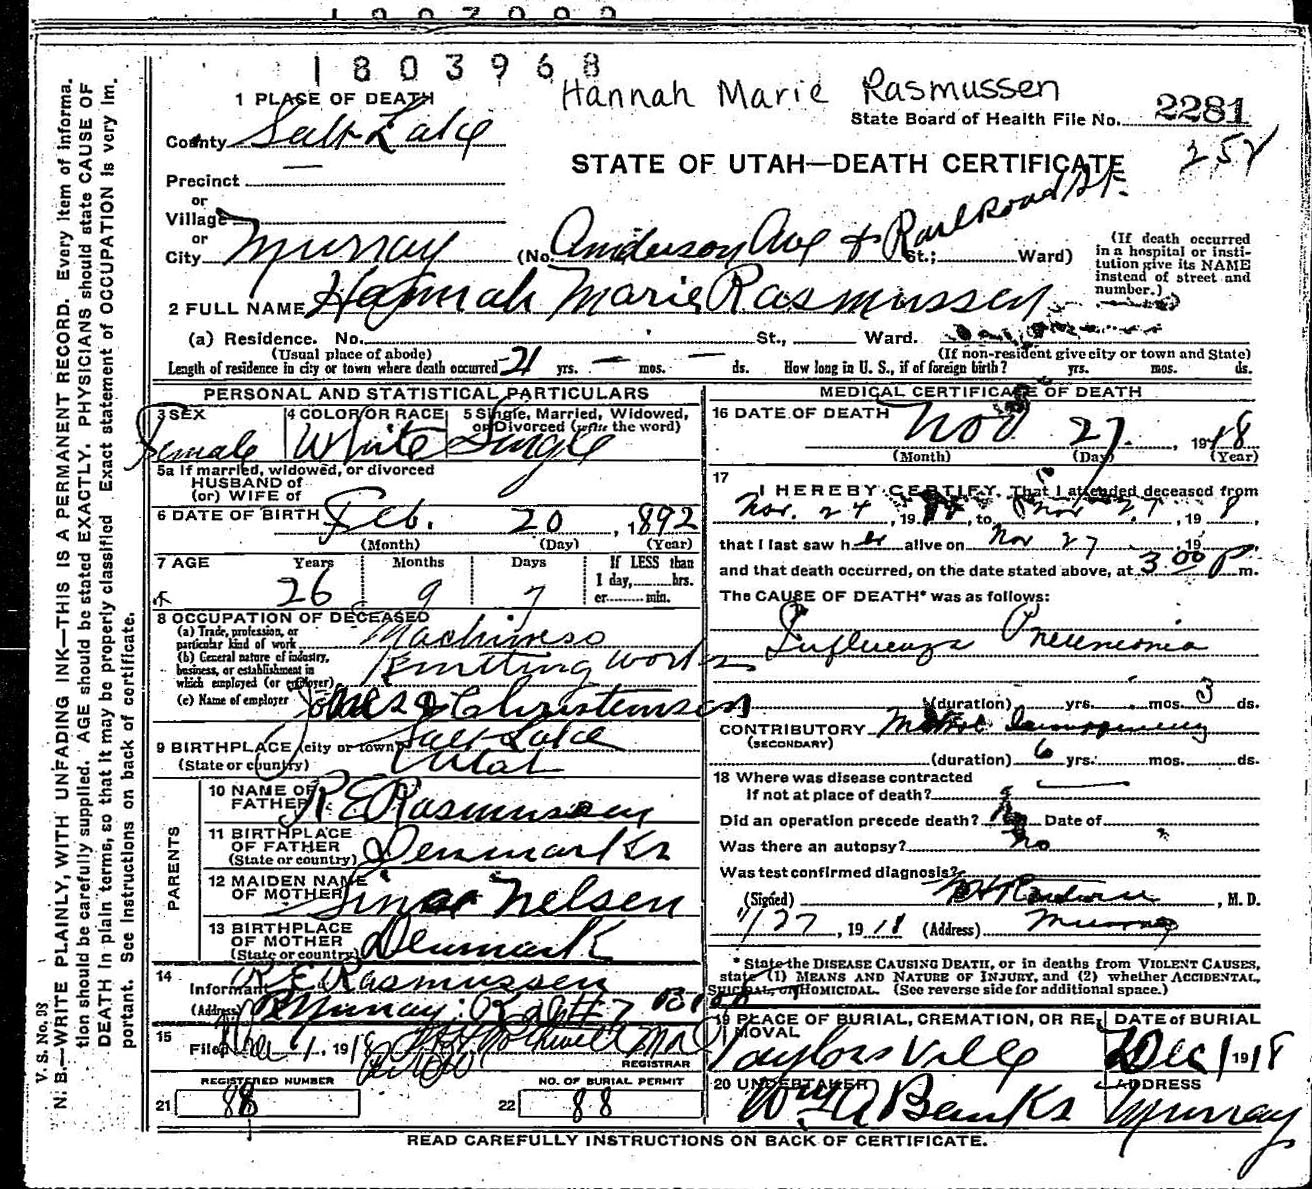 1803968
Hannah Marie Rasmussen
1 PLACE OF DEATH
State Board of Health File No. 2281
County Salt Lake
252
STATE OF UTAH—DEATH CERTIFICATE
Precinct
or
Village
or
City Murray (No. Anderson Ave + Railroad St. St.; Ward)
(If death occurred in a hospital or institution give its NAME instead of street and number.)
2 FULL NAME Hannah Marie Rasmussen
(a) Residence. No. St., Ward.
(Usual place of abode) (If non-resident give city or town and State)
Length of residence in city or town where death occurred 21 yrs. — mos. — ds. How long in U. S., if of foreign birth? yrs. mos. ds.
PERSONAL AND STATISTICAL PARTICULARS
3 SEX Female
4 COLOR OR RACE White
5 Single, Married, Widowed, or Divorced (write the word) Single
5a If married, widowed, or divorced
HUSBAND of
(or) WIFE of
6 DATE OF BIRTH Feb. 20, 1892
(Month) (Day) (Year)
7 AGE Years Months Days If LESS than
26 9 7 1 day, hrs.
or min.
8 OCCUPATION OF DECEASED
(a) Trade, profession, or
particular kind of work
(b) General nature of industry,
business, or establishment in
which employed (or employer) Knitting works
(c) Name of employer Christensen
9 BIRTHPLACE (city or town) Salt Lake
(State or country) Utah
PARENTS
10 NAME OF FATHER R E Rasmussen
11 BIRTHPLACE OF FATHER (State or country) Denmark
12 MAIDEN NAME OF MOTHER Sina Nelsen
13 BIRTHPLACE OF MOTHER (State or country) Denmark
14
Informant R E Rasmussen
(Address) Murray
15
Filed Dec 1, 1918
REGISTRAR
REGISTERED NUMBER
21 88
NO. OF BURIAL PERMIT
22 88
MEDICAL CERTIFICATE OF DEATH
16 DATE OF DEATH Nov 27. 1918
(Month) (Day) (Year)
17
I HEREBY CERTIFY, That I attended deceased from
Nov. 24, 19 18, to Nov 27, 19 8,
that I last saw her alive on Nov 27 19
and that death occurred, on the date stated above, at 3 00 P m.
The CAUSE OF DEATH* was as follows:
Influenza Pneumonia
(duration) yrs. mos. 3 ds.
CONTRIBUTORY
(SECONDARY)
(duration) 6 yrs. mos. ds.
18 Where was disease contracted
If not at place of death?
Did an operation precede death? Date of
Was there an autopsy? No
Was test confirmed diagnosis?
(Signed) , M. D.
11/27, 1918 (Address) Murray
* State the DISEASE CAUSING DEATH, or in deaths from VIOLENT CAUSES,
state (1) MEANS AND NATURE OF INJURY, and (2) whether ACCIDENTAL,
SUICIDAL, or HOMICIDAL. (See reverse side for additional space.)
19 PLACE OF BURIAL, CREMATION, OR RE-
MOVAL
Taylorsville
DATE of BURIAL
Dec 1 1918
20 UNDERTAKER
Wm A Banks
ADDRESS
Murray
READ CAREFULLY INSTRUCTIONS ON BACK OF CERTIFICATE.
V. S. No. 98
N. B.—WRITE PLAINLY, WITH UNFADING INK—THIS IS A PERMANENT RECORD. Every item of informa-
tion should be carefully supplied. AGE should be stated EXACTLY. PHYSICIANS should state CAUSE OF
DEATH in plain terms, so that it may be properly classified. Exact statement of OCCUPATION is very im-
portant. See instructions on back of certificate.